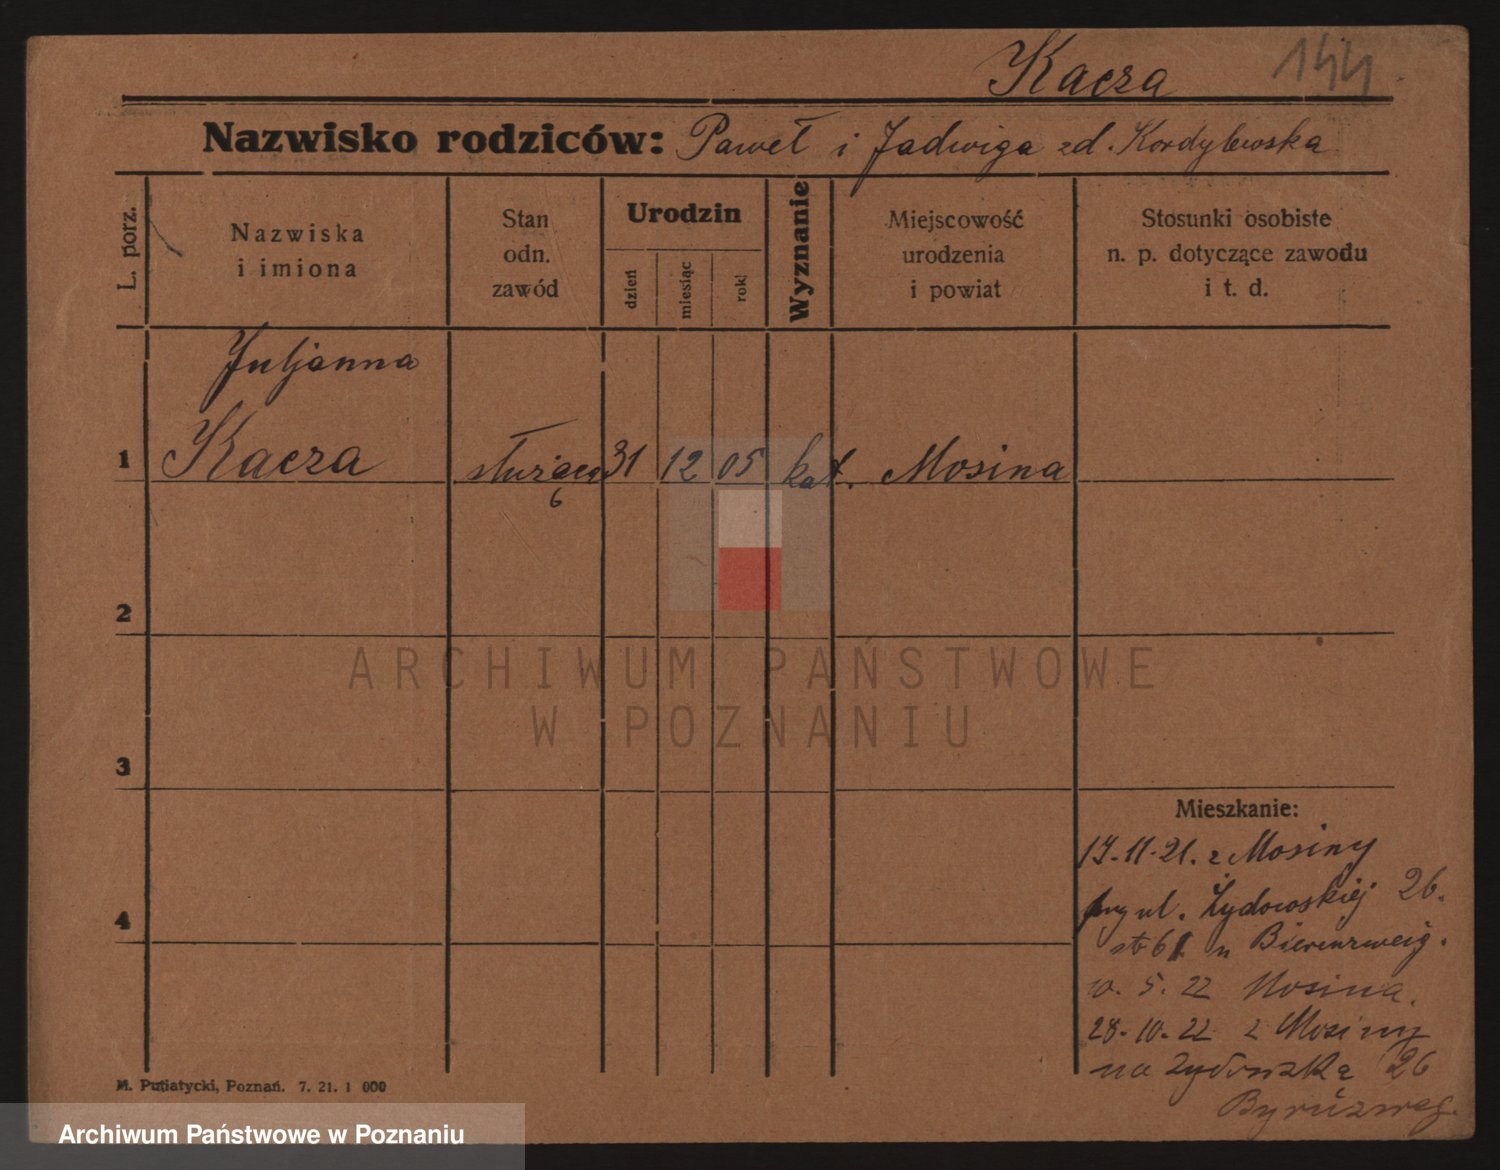 Kacza 144
Nazwisko rodziców: Paweł i Jadwiga zd. Kordylewska
L. porz.
Nazwiska
i imiona
Stan
odn.
zawód
Urodzin
dzień
miesiąc
rok
Wyznanie
Miejscowość
urodzenia
i powiat
Stosunki osobiste
n. p. dotyczące zawodu
i t. d.
Juljanna
1 Kacza służąca 31 12 05 kat. Mosina
6
2
3
4
ARCHIWUM PAŃSTWOWE
W POZNANIU
Mieszkanie:
17.11.21. z Mosiny
ul. Żydowskiej 26.
u
10. 5. 22 Mosina.
28.10.22 z Mosiny
na Żydowską 26
M. Putiatycki, Poznań. 7. 21. 1 000
Archiwum Państwowe w Poznaniu